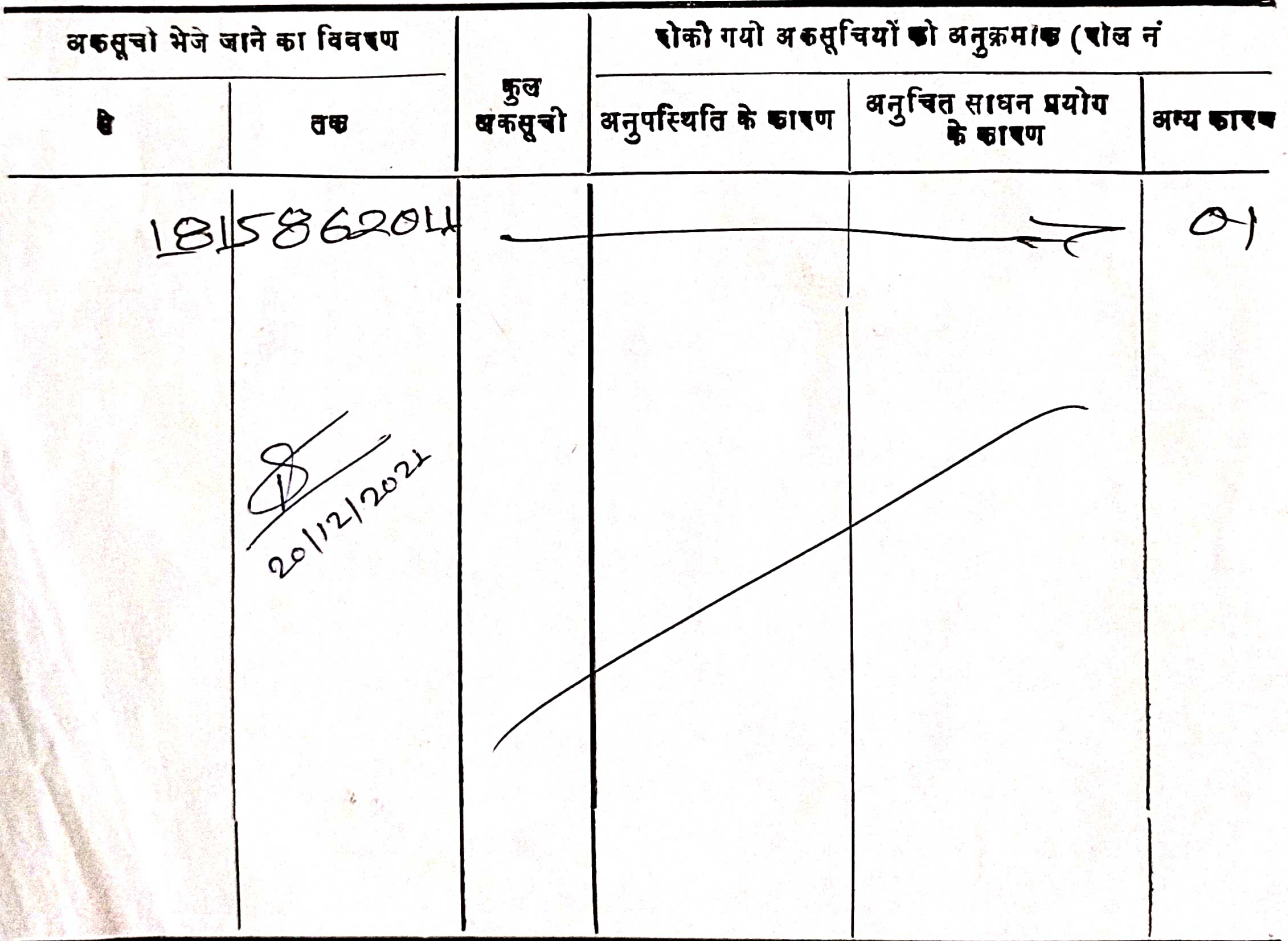 अकसूची भेजे जाने का विवरण
रोकी गयी अकसूचियों की अनुक्रमांक (रोल नं
से
तक
कुल
अकसूची
अनुपस्थिति के कारण
अनुचित साधन प्रयोग
के कारण
अन्य कारण
181586204
01
20/12/2021